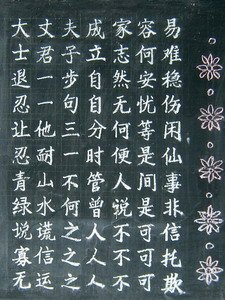 大丈夫成家容易
士君子立志何难
退一步自然安稳
忍一句自无忧伤
让他三分何等闲
忍耐一时便是仙
青山不管人间事
绿水何曾说是非
说谎之人不可信
寡信之人不可托
无运之人不可欺